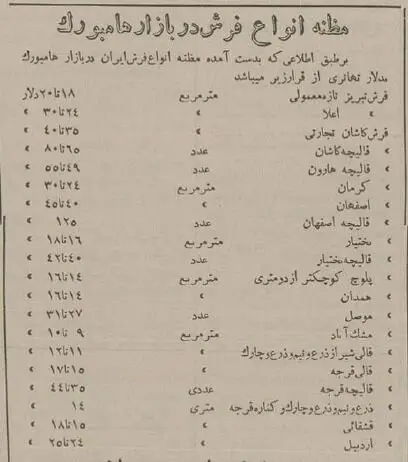 مظنه انواع فرش در بازار هامبورك
برطبق اطلاعی که بدست آمده مظنه انواع فرش ایران در بازار هامبورك
بدلار تهاتری از قرار زیر میباشد
فرش تبریز تازه معمولی مترمربع ۱۸ تا ۲۰ دلار
» » اعلا » ۲۴ تا ۳۰ »
فرش کاشان تجارتی » ۳۵ تا ۴۰ »
» قالیچه کاشان عدد ۶۵ تا ۸۰ »
» قالیچه هارون عدد ۴۹ تا ۵۵ »
» کرمان مترمربع ۲۴ تا ۳۰ »
» اصفهان » ۴۰ تا ۴۵ »
» قالیچه اصفهان عدد ۱۲۵ »
» بختیار مترمربع ۱۶ تا ۱۸ »
» قالیچه بختیار عدد ۴۰ تا ۴۲ »
» بلوچ کوچکتر از دومتری مترمربع ۱۴ تا ۱۶ »
» همدان » ۱۴ تا ۱۶ »
» موصل عدد ۲۷ تا ۳۱ »
» مشك آباد مترمربع ۹ تا ۱۰ »
» قالی شیراز ذرع و نیم و ذرع و چارك » ۱۱ تا ۱۲ »
» قالی قرجه » ۱۵ تا ۱۷ »
» قالیچه قرجه عددی ۳۵ تا ۴۴ »
» ذرع و نیم و ذرع و چارك و کناره قرجه متری ۱۴ »
» قشقائی » ۱۵ تا ۱۸ »
» اردبیل » ۲۴ تا ۲۵ »